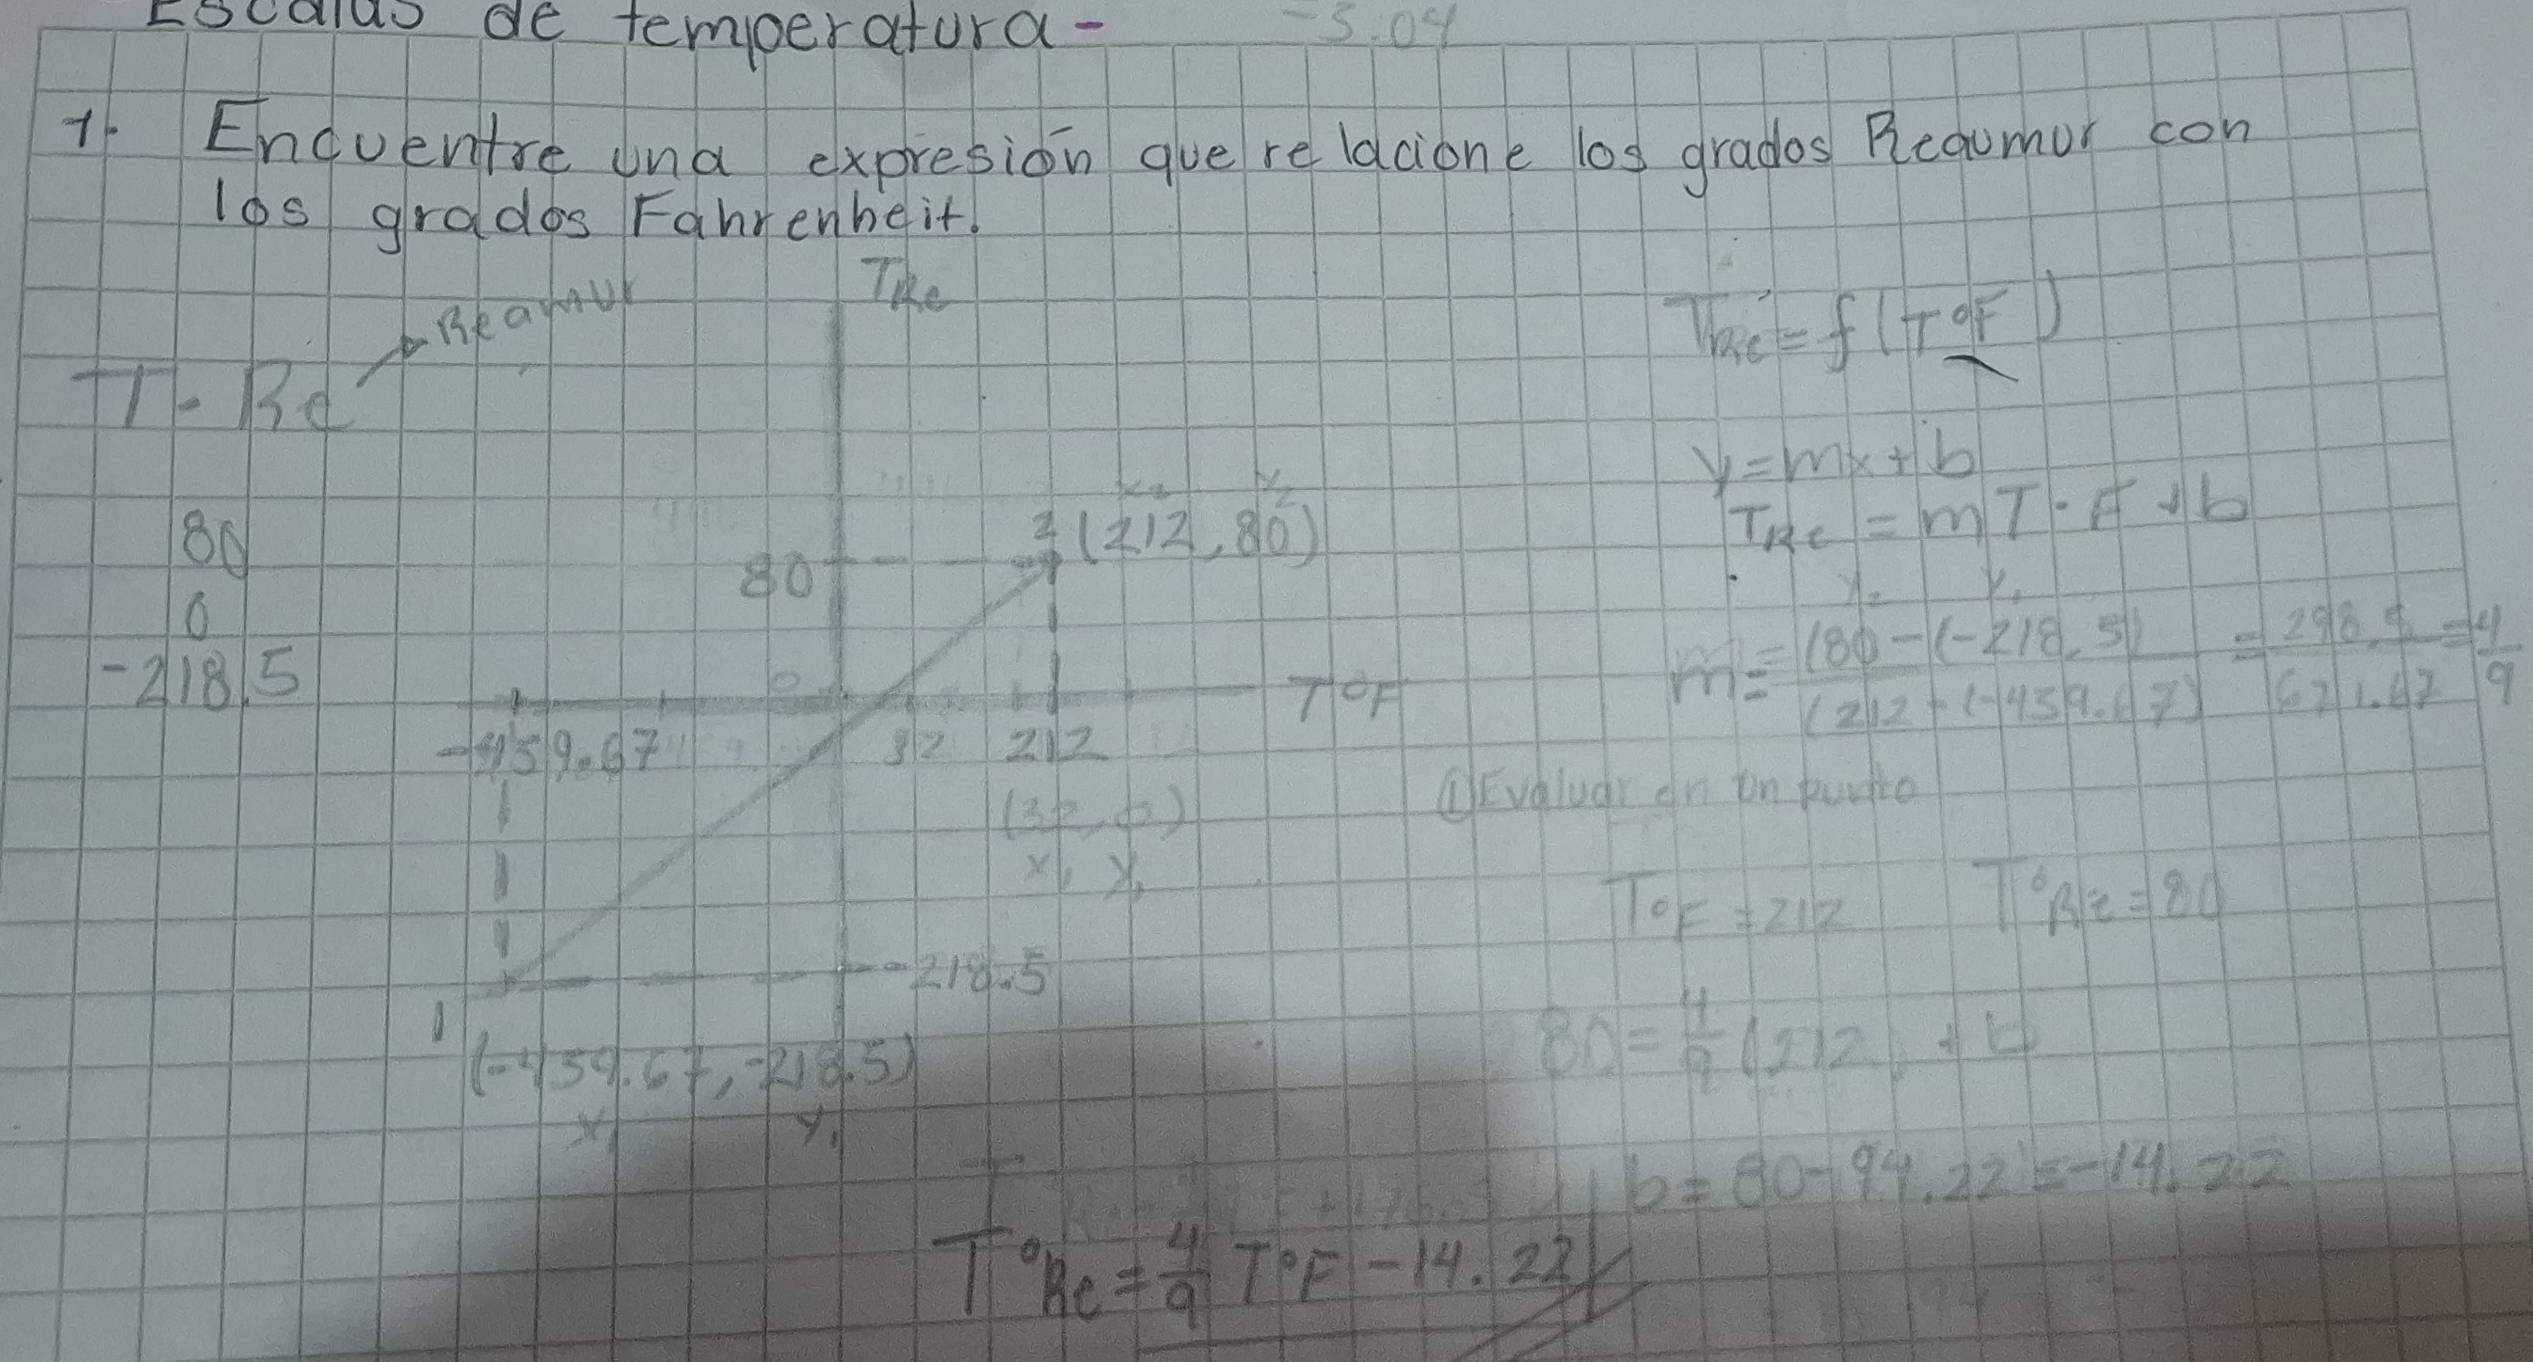 Escalas de temperatura-
-3.04
1- Encuentre una expresión que relacione los grados Reaumur con
los grados Fahrenheit.
Reamur
T - Re
80
0
-218.5
TRe
80
2 (212, 80)
x2 y2
0
T°F
-459.67
32
212
(32, 0)
x1 y1
-218.5
1
(-459.67, -218.5)
x1 y1
TRe = f(T°F)
y = mx + b
TRe = mT·F + b
y2 y1
m = (80 - (-218.5)) / (212 - (-459.67)) = 298.5 / 671.67 = 4/9
① Evaluar en un punto
T°F = 212 T°Re = 80
80 = 4/9 (212) + b
b = 80 - 94.22 = -14.22
T°Re = 4/9 T°F - 14.22